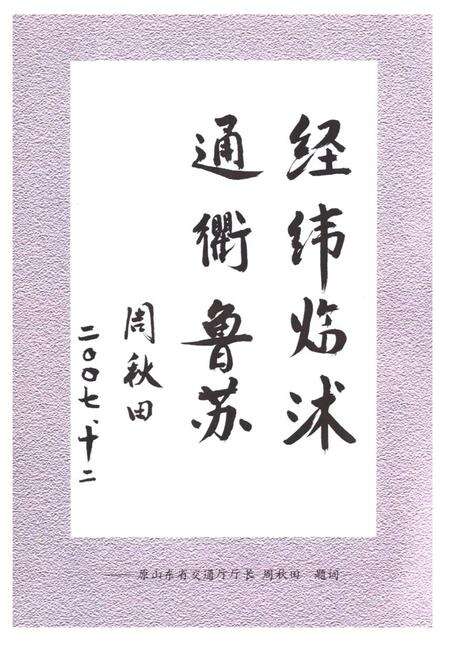 经纬临沭
通衢鲁苏
周秋田
二〇〇七、十二
—— 原山东省交通厅厅长 周秋田 题词